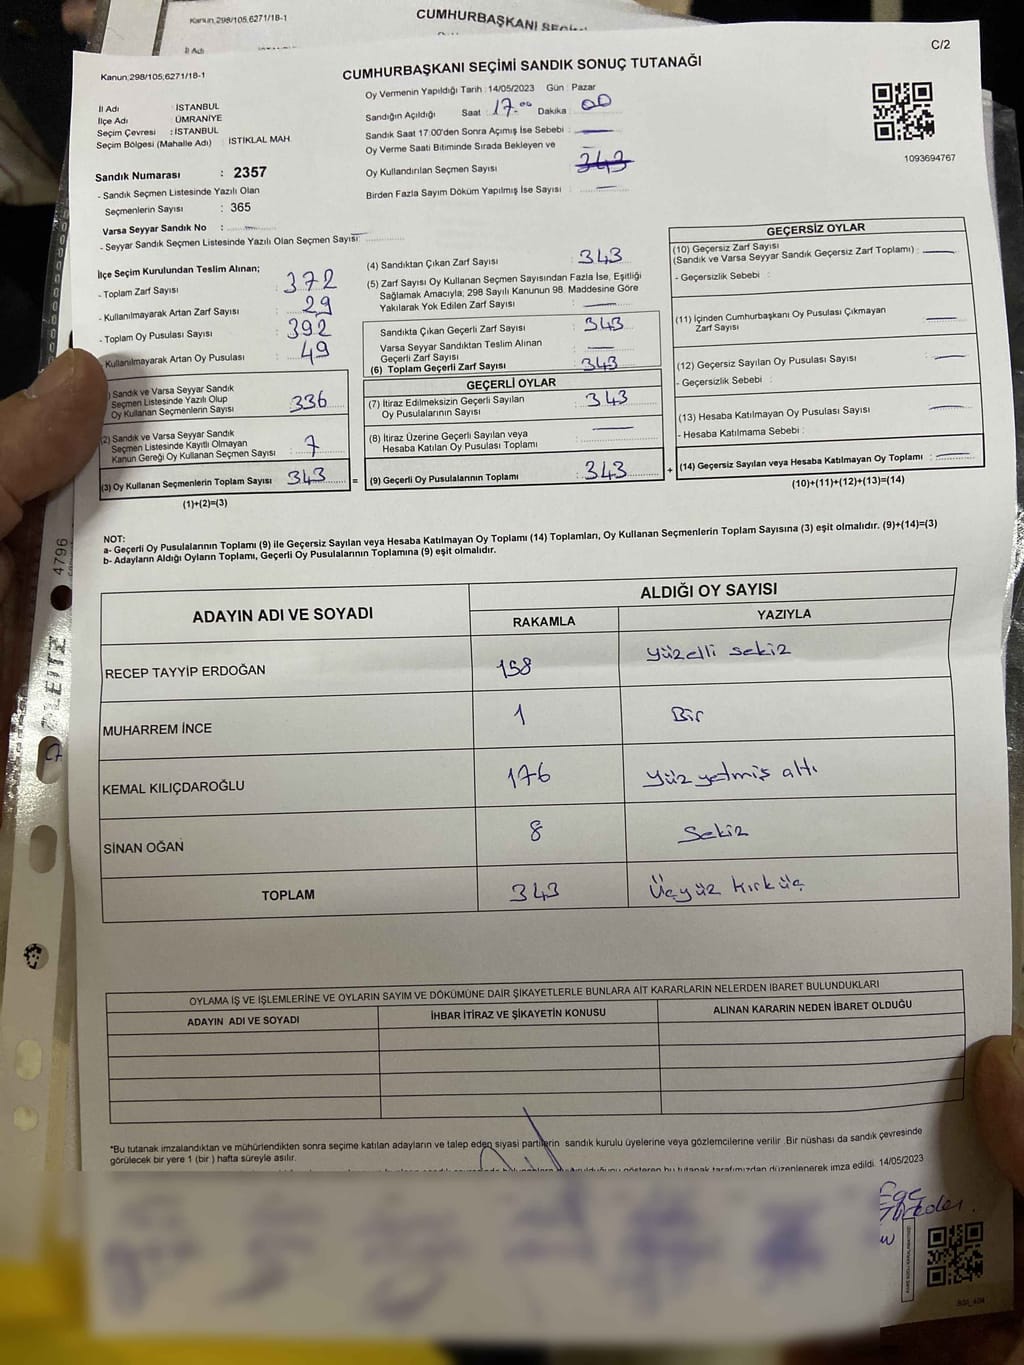 Kanun,298/105,6271/18-1
CUMHURBAŞKANI
İl Adı
C/2
Kanun,298/105,6271/18-1
CUMHURBAŞKANI SEÇİMİ SANDIK SONUÇ TUTANAĞI
İl Adı : İSTANBUL
İlçe Adı : ÜMRANİYE
Seçim Çevresi : İSTANBUL
Seçim Bölgesi (Mahalle Adı) : İSTİKLAL MAH
Sandık Numarası : 2357
- Sandık Seçmen Listesinde Yazılı Olan
Seçmenlerin Sayısı : 365
Varsa Seyyar Sandık No : —
- Seyyar Sandık Seçmen Listesinde Yazılı Olan Seçmen Sayısı:
Oy Vermenin Yapıldığı Tarih : 14/05/2023 Gün : Pazar
Sandığın Açıldığı Saat : 17.00 Dakika : 00
Sandık Saat 17:00'den Sonra Açımış İse Sebebi : —
Oy Verme Saati Bitiminde Sırada Bekleyen ve
Oy Kullandırılan Seçmen Sayısı : 343
Birden Fazla Sayım Döküm Yapılmış İse Sayısı : —
1093694767
İlçe Seçim Kurulundan Teslim Alınan;
- Toplam Zarf Sayısı : 372
- Kullanılmayarak Artan Zarf Sayısı : 29
- Toplam Oy Pusulası Sayısı : 392
- Kullanılmayarak Artan Oy Pusulası : 49
) Sandık ve Varsa Seyyar Sandık
Seçmen Listesinde Yazılı Olup
Oy Kullanan Seçmenlerin Sayısı : 336
(2) Sandık ve Varsa Seyyar Sandık
Seçmen Listesinde Kayıtlı Olmayan
Kanun Gereği Oy Kullanan Seçmen Sayısı : 7
(3) Oy Kullanan Seçmenlerin Toplam Sayısı : 343 =
(1)+(2)=(3)
(4) Sandıktan Çıkan Zarf Sayısı : 343
(5) Zarf Sayısı Oy Kullanan Seçmen Sayısından Fazla İse, Eşitliği
Sağlamak Amacıyla, 298 Sayılı Kanunun 98. Maddesine Göre
Yakılarak Yok Edilen Zarf Sayısı : —
Sandıkta Çıkan Geçerli Zarf Sayısı : 343
Varsa Seyyar Sandıktan Teslim Alınan
Geçerli Zarf Sayısı : —
(6) Toplam Geçerli Zarf Sayısı : 343
GEÇERLİ OYLAR
(7) İtiraz Edilmeksizin Geçerli Sayılan
Oy Pusulalarının Sayısı : 343
(8) İtiraz Üzerine Geçerli Sayılan veya
Hesaba Katılan Oy Pusulası Toplamı : —
(9) Geçerli Oy Pusulalarının Toplamı : 343 +
GEÇERSİZ OYLAR
(10) Geçersiz Zarf Sayısı
(Sandık ve Varsa Seyyar Sandık Geçersiz Zarf Toplamı) : —
- Geçersizlik Sebebi :
(11) İçinden Cumhurbaşkanı Oy Pusulası Çıkmayan
Zarf Sayısı : —
(12) Geçersiz Sayılan Oy Pusulası Sayısı : —
- Geçersizlik Sebebi :
(13) Hesaba Katılmayan Oy Pusulası Sayısı : —
- Hesaba Katılmama Sebebi :
(14) Geçersiz Sayılan veya Hesaba Katılmayan Oy Toplamı : —
(10)+(11)+(12)+(13)=(14)
NOT:
a- Geçerli Oy Pusulalarının Toplamı (9) ile Geçersiz Sayılan veya Hesaba Katılmayan Oy Toplamı (14) Toplamları, Oy Kullanan Seçmenlerin Toplam Sayısına (3) eşit olmalıdır. (9)+(14)=(3)
b- Adayların Aldığı Oyların Toplamı, Geçerli Oy Pusulalarının Toplamına (9) eşit olmalıdır.
ADAYIN ADI VE SOYADI
ALDIĞI OY SAYISI
RAKAMLA YAZIYLA
RECEP TAYYİP ERDOĞAN 158 yüzelli sekiz
MUHARREM İNCE 1 Bir
KEMAL KILIÇDAROĞLU 176 yüz yetmiş altı
SİNAN OĞAN 8 Sekiz
TOPLAM 343 Üçyüz kırküç
OYLAMA İŞ VE İŞLEMLERİNE VE OYLARIN SAYIM VE DÖKÜMÜNE DAİR ŞİKAYETLERLE BUNLARA AİT KARARLARIN NELERDEN İBARET BULUNDUKLARI
ADAYIN ADI VE SOYADI İHBAR İTİRAZ VE ŞİKAYETİN KONUSU ALINAN KARARIN NEDEN İBARET OLDUĞU
*Bu tutanak imzalandıktan ve mühürlendikten sonra seçime katılan adayların ve talep eden siyasi partilerin sandık kurulu üyelerine veya gözlemcilerine verilir .Bir nüshası da sandık çevresinde
görülecek bir yere 1 (bir ) hafta süreyle asılır.
gösteren bu tutanak tarafımızdan düzenlenerek imza edildi. 14/05/2023
Ege
4796
LEITZ